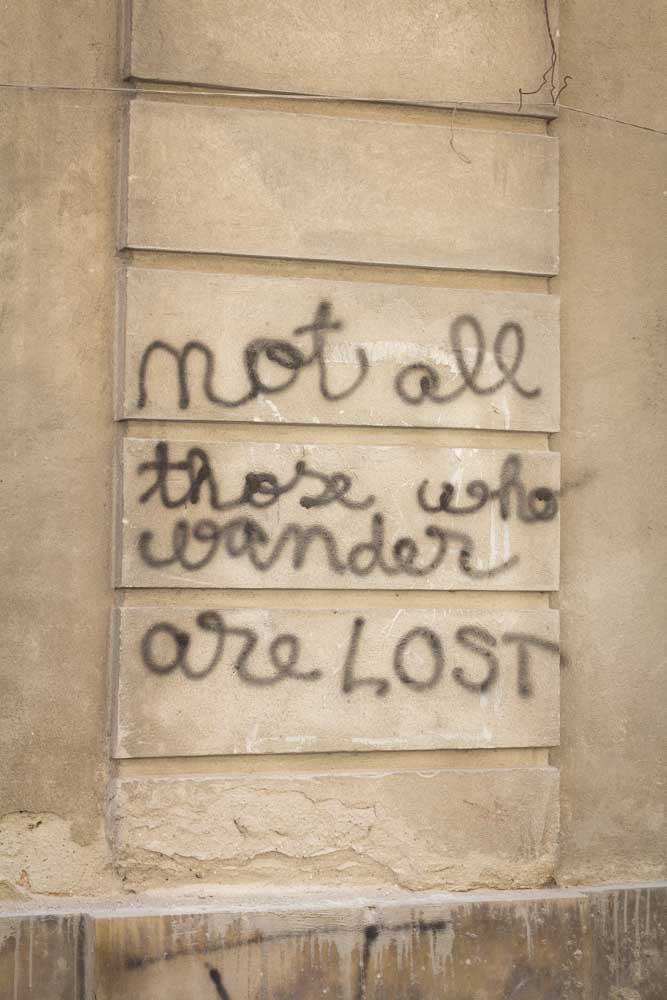 not all
those who
wander
are LOST